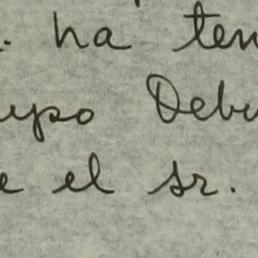 . ha ten
upo Debu
e el sr.